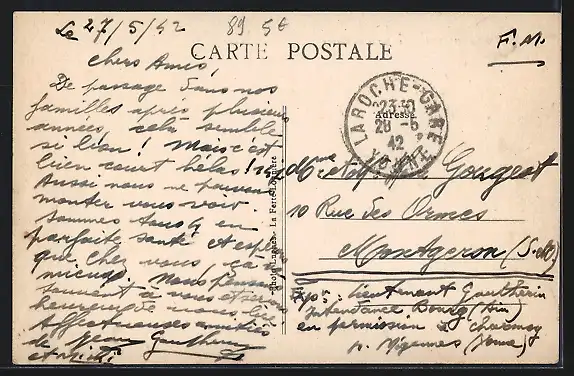 Le 27/5/42
89 5€
CARTE POSTALE
F.M.
Chers Amis,
De passage dans nos
familles après plusieurs
années, cela semble
si bon ! Mais c'est
bien court hélas !
Aussi nous ne pouvons
monter vous voir.
Sommes tous en
parfaite santé et espérons
que chez vous ça va
mieux. Nous pensons
souvent à vous et serons
heureux de
Affectueuses amitiés
de Jean Gautherin
et
Photo Lugnes, La Ferté-Loupière
LAROCHE-GARE
23:30
28 -5
42
YONNE
Adresse
Mme Gougeot
10 Rue des Ormes
Montgeron (S.-&-O)
Exp. : Lieutenant Gautherin
Intendance Bourg (Ain)
en permission à Charmoy
p. Migennes (Yonne)